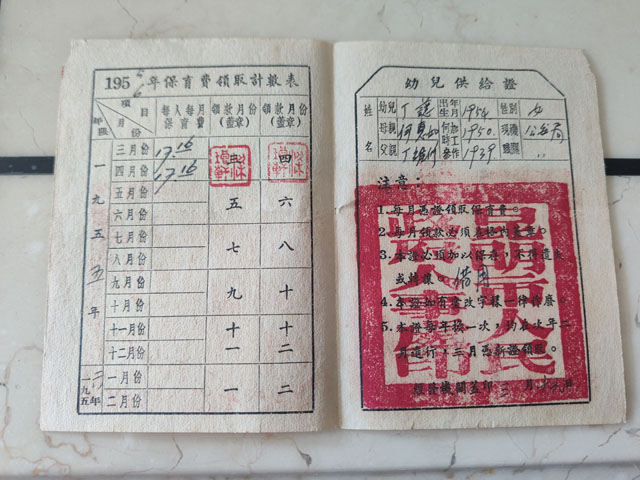 195 年保育費領取計數表
項目
月份
年區
每人每月保育費
領款月份(蓋章)
領款月份(蓋章)
一九五五年
三月份 17.16 三 四
四月份 17.16
五月份 五 六
六月份
七月份 七 八
八月份
九月份 九 十
十月份
十一月份 十一 十二
十二月份
一月份 一 二
二月份
幼兒供給證
姓名
幼兒 丁 出生年月 1954. 性別 女
母親 何 何時參加工作 1950. 現機關職 公安局
父親 丁 1939. 〃
注意:
1.每月憑證領取保育費。
2.每月領款必須在格內蓋章。
3.本證必須加以保存,不得遺失
或轉讓。借用
4.本證如有塗改字樣一律作廢。
5.本證每年換一次,約在次年二
月進行,三月憑新證領取。
昆明市人民政府